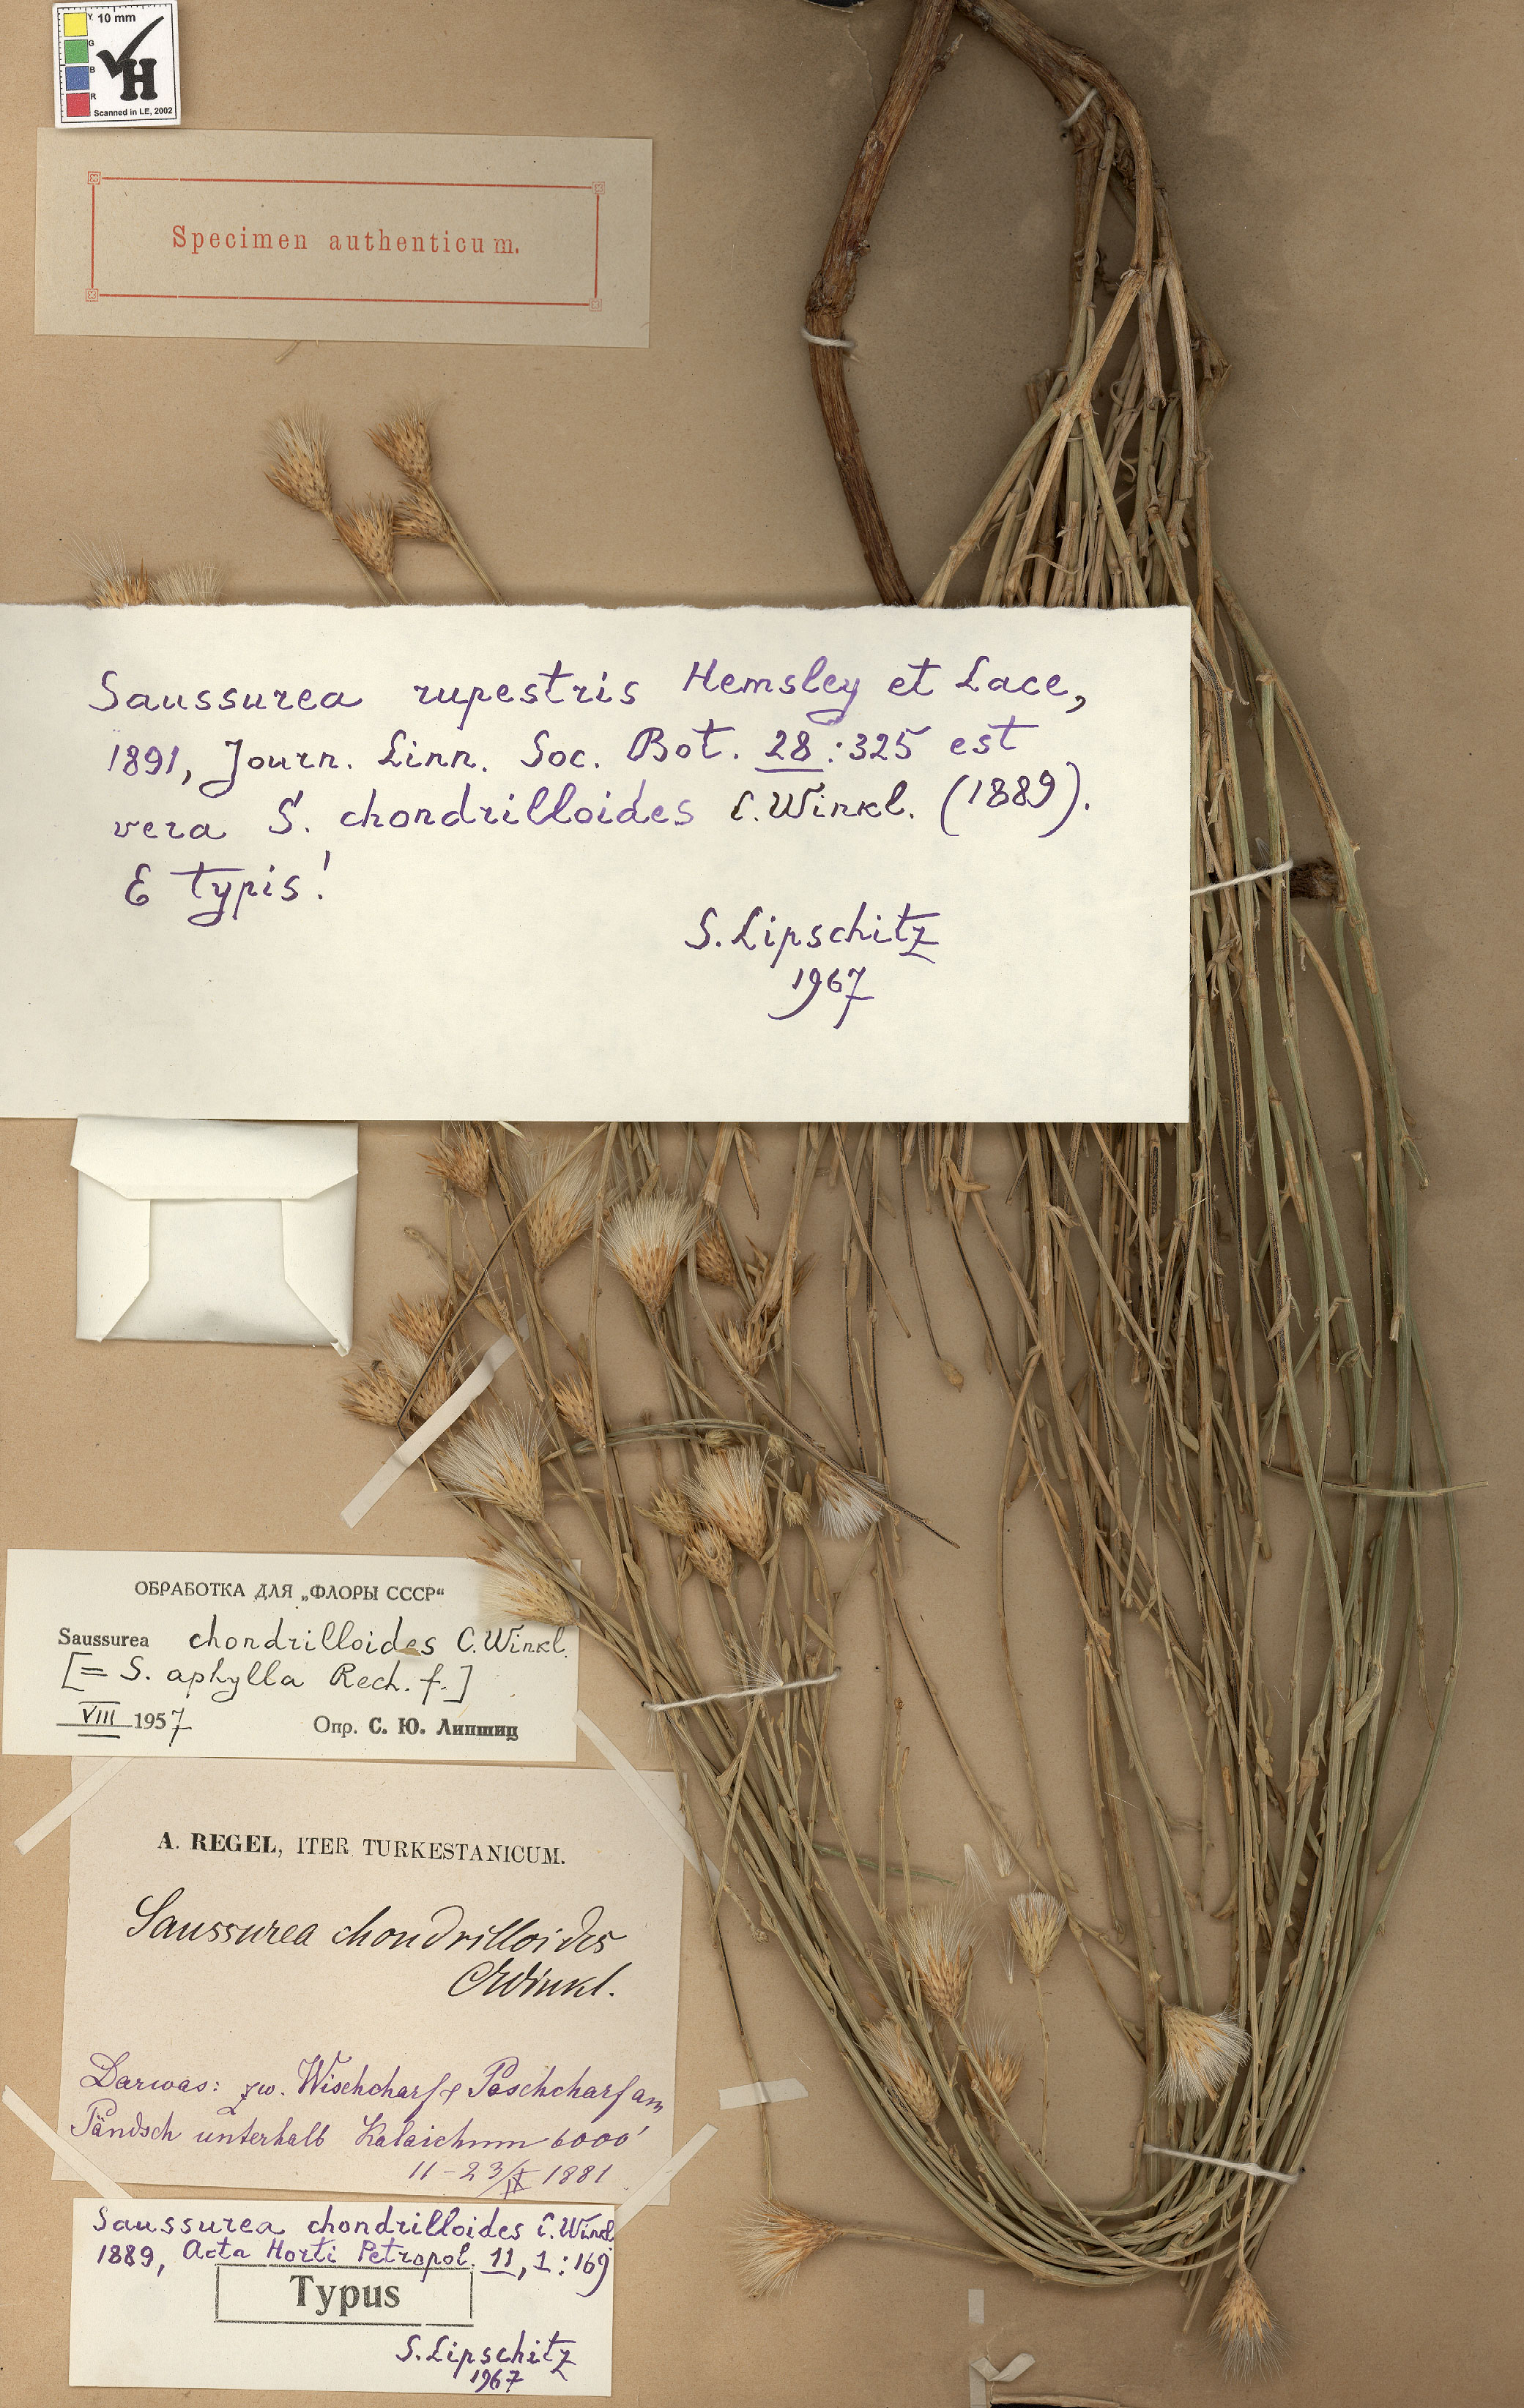 Y 10 mm
G
B
R
VH
Scanned in LE, 2002
Specimen authenticum.
Saussurea rupestris Hemsley et Lace,
1891, Journ. Linn. Soc. Bot. 28 : 325 est
vera S. chondrilloides C. Winkl. (1889).
E typis!
S. Lipschitz
1967
ОБРАБОТКА ДЛЯ „ФЛОРЫ СССР“
Saussurea chondrilloides C. Winkl.
[= S. aphylla Rech. f.]
VIII 1957 Опр. С. Ю. Липшиц
A. REGEL, ITER TURKESTANICUM.
Saussurea chondrilloides
CWinkl.
Darwas: zw. Wischcharf & Paschcharf am
Pändsch unterhalb Kalaichum 6000'
11-23/IX 1881
Saussurea chondrilloides C. Winkl
1889, Acta Horti Petropol. 11, 1 : 169
Typus
S. Lipschitz
1967